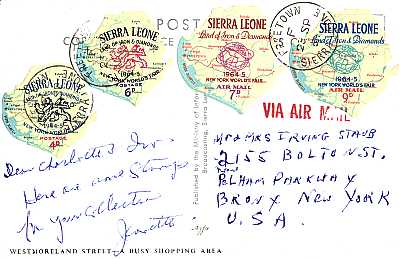 POST
SIERRA LEONE
Land of Iron & Diamonds
1964-5
NEW YORK WORLD'S FAIR
POSTAGE
4º
SIERRA LEONE
LAND OF IRON & DIAMONDS
1964-5
NEW YORK WORLD'S FAIR
POSTAGE
6º
SIERRA LEONE
Land of Iron & Diamonds
1964-5
NEW YORK WORLD'S FAIR
AIR MAIL
7º
SIERRA LEONE
Land of Iron & Diamonds
1964-5
NEW YORK WORLD'S FAIR
AIR MAIL
9º
VIA AIR MAIL
Dear Charlotte & Irv -
Here are more Stamps
for your Collection
Published by the Ministry of
Broadcasting, Sierra
Mr & Mrs IRVING STAUB
2155 BOLTON ST.
PELHAM PARKWAY
BRONX, NEW YORK
U.S.A.
WESTMORELAND STREET—A BUSY SHOPPING AREA